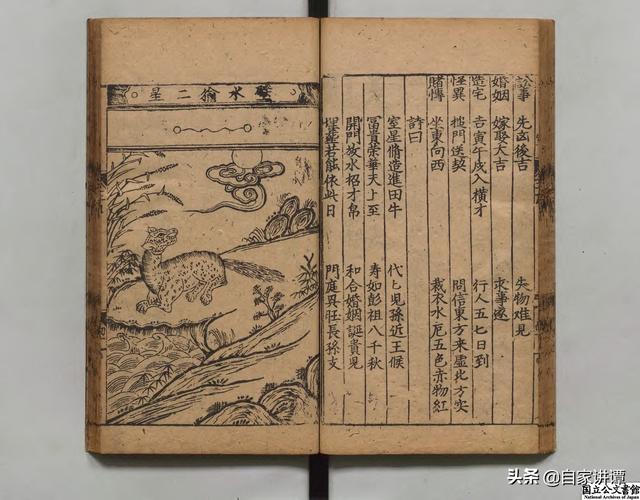 訟事 先凶後吉 失物难見
婚姻 嫁娶大吉 求事遂
造宅 吉寅午戌入横才 行人五七日到
怪異 門送契 問信東方来虚北方实
賭博 坐東向西 裁衣水厄五色亦物紅
詩曰
室星脩造進田牛 代匕児孫近王候
冨貴荣華天上至 寿如彭祖八千秋
開門放水招才帛 和合婚姻誕貴児
埋葬若能依此日 門庭興旺長孫支
壁水㺄二星
头条 @自家讲谭
国立公文書館
National Archives of Japan